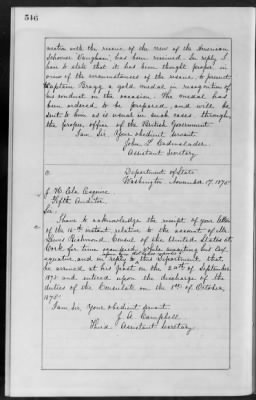 546
mation with the rescue of the crew of the American
Schooner Vaughan, has been received. In reply I
have to state that it has been thought proper in
view of the circumstances of the rescue, to present
Captain Bragg a gold medal in recognition of
his conduct on the occasion. The medal has
been ordered to be prepared, and will be
sent to him as is usual in such cases through
the proper office of the British Government.
I am Sir, Your obedient servant
John L Cadwalader
Assistant Secretary
Department of State
Washington November 17. 1875
J. H. Ela Esquire
Fifth Auditor
Sir:
I have to acknowledge the receipt of your letter
of the 15th instant relative to the account of Mr.
Lewis Richmond Consul of the United States at
Cork for time occupied while awaiting his
and in reply to this Department that
he arrived at his post on the 20th of September
1875 and entered upon the discharge of the
duties of the Consulate on the 1st of October
1875.
I am Sir, Your obedient servant
J. A. Campbell
Third Assistant Secretary